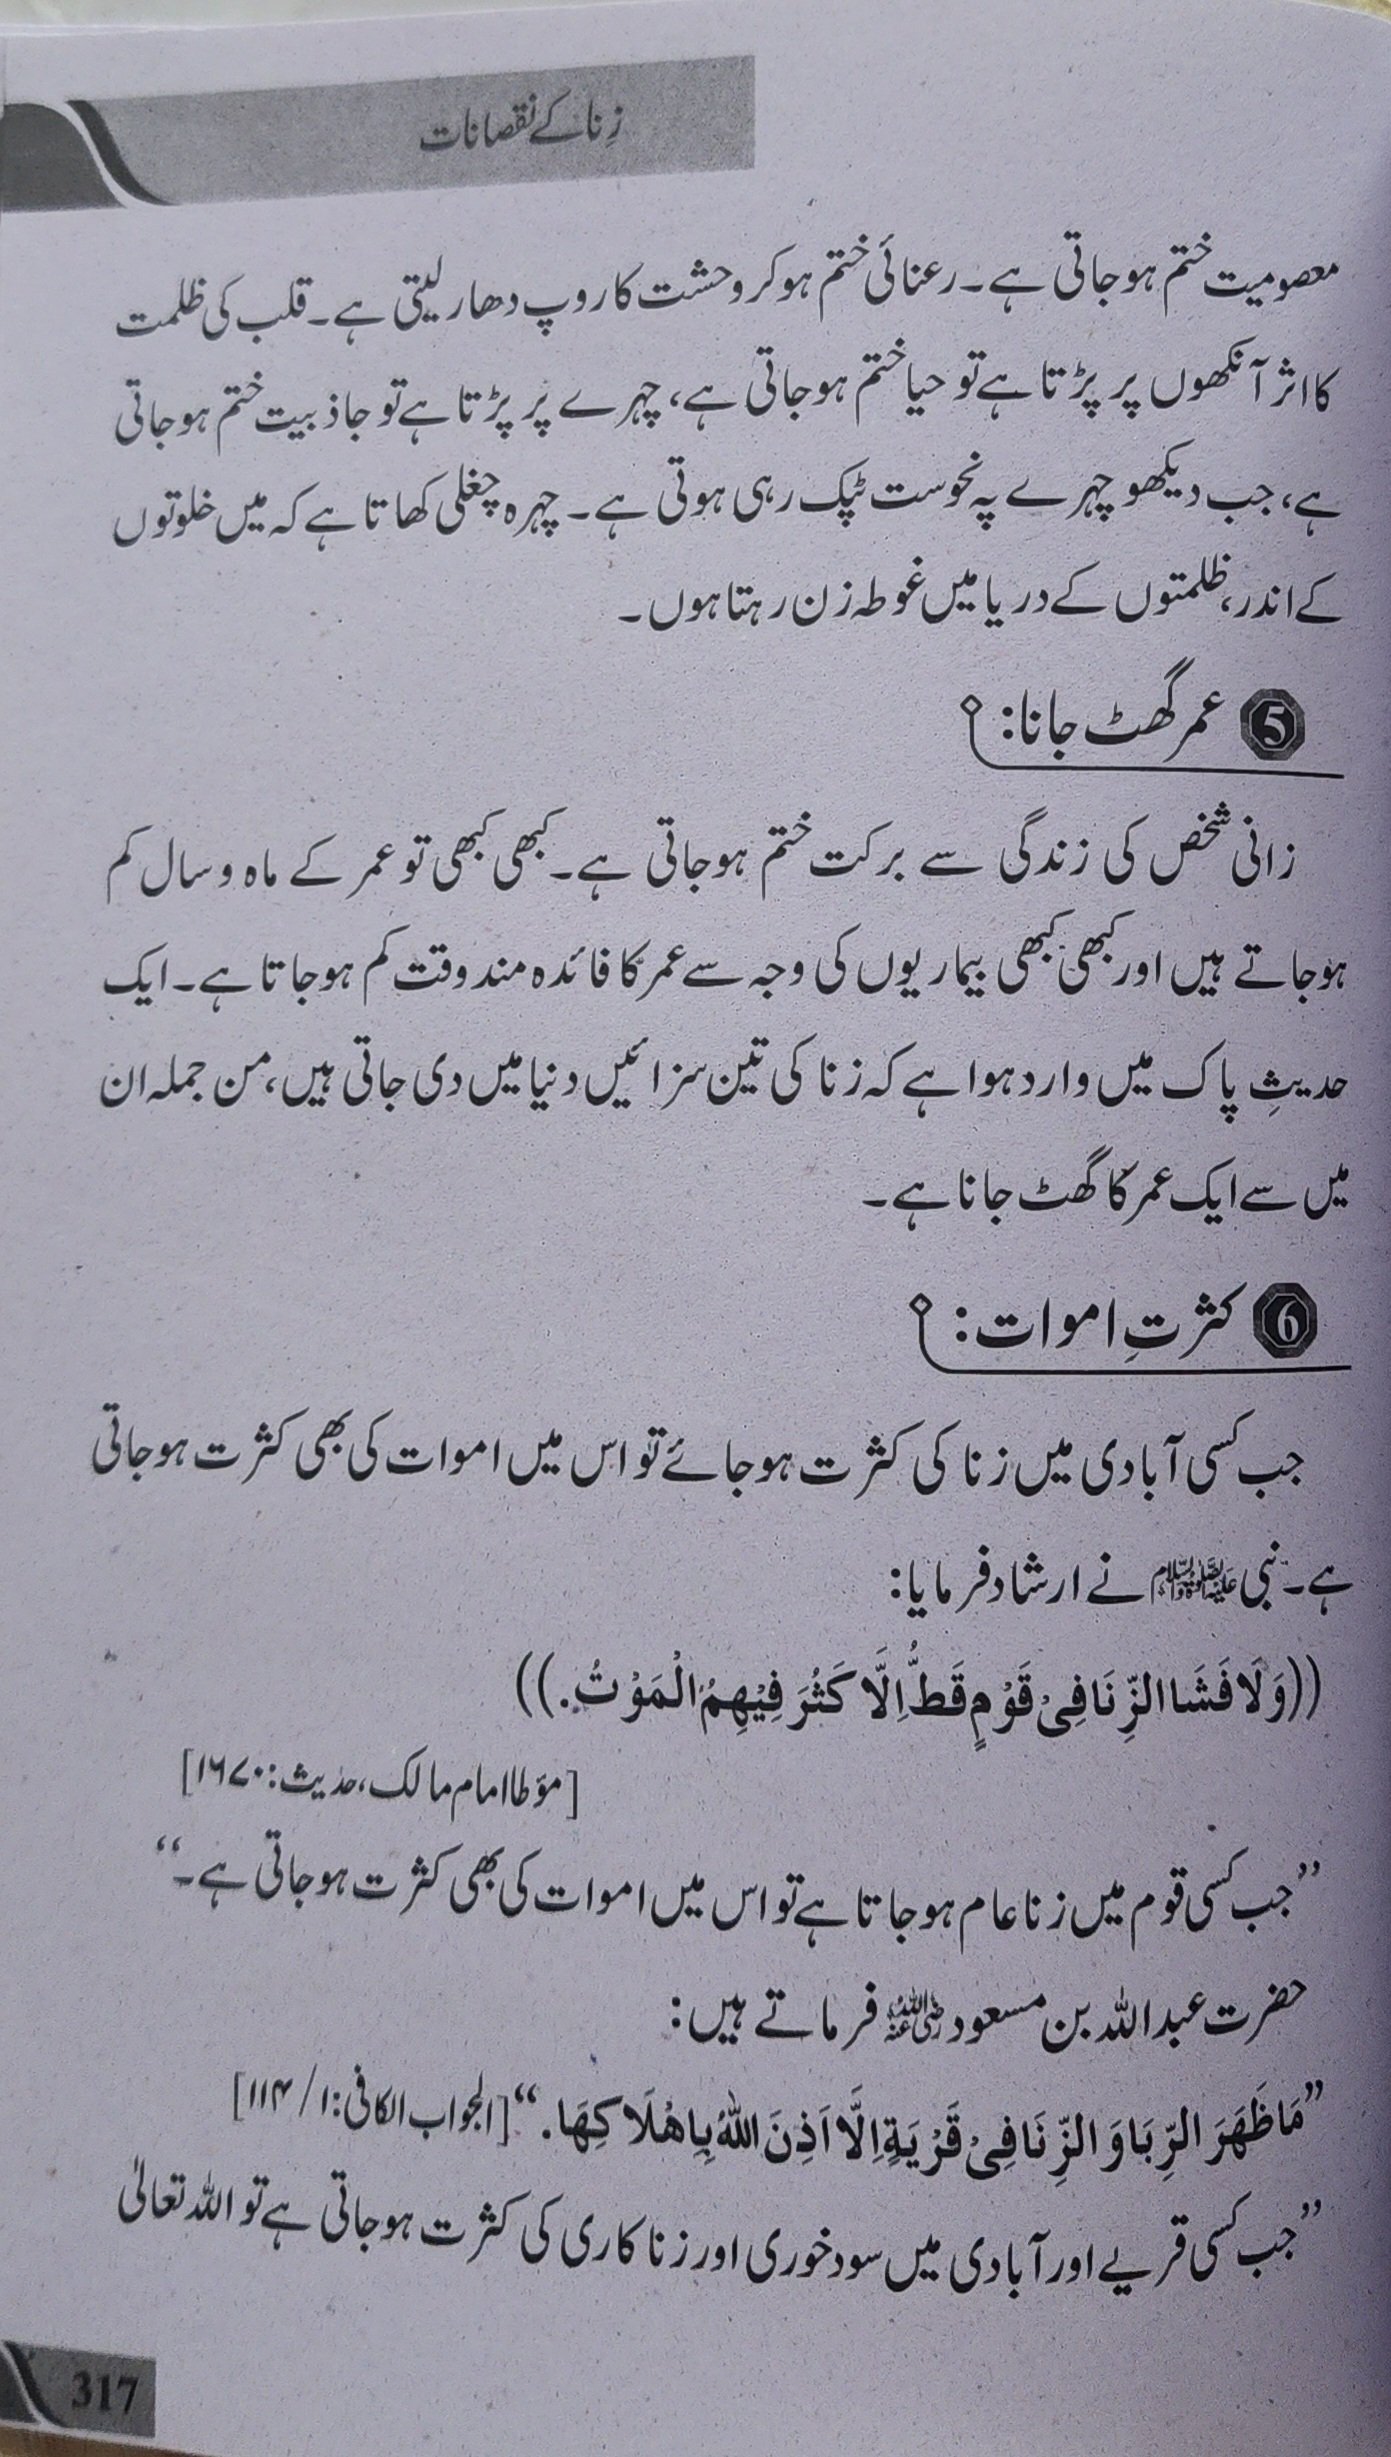 زِنا کے نقصانات
معصومیت ختم ہوجاتی ہے۔ رعنائی ختم ہوکر وحشت کا روپ دھار لیتی ہے۔ قلب کی ظلمت
کا اثر آنکھوں پر پڑتا ہے تو حیا ختم ہوجاتی ہے، چہرے پر پڑتا ہے تو جاذبیت ختم ہوجاتی
ہے، جب دیکھو چہرے پہ نحوست ٹپک رہی ہوتی ہے۔ چہرہ چغلی کھاتا ہے کہ میں خلوتوں
کے اندر، ظلمتوں کے دریا میں غوطہ زن رہتا ہوں۔
5 عمر گھٹ جانا:
زانی شخص کی زندگی سے برکت ختم ہوجاتی ہے۔ کبھی کبھی تو عمر کے ماہ و سال کم
ہوجاتے ہیں اور کبھی کبھی بیماریوں کی وجہ سے عمر کا فائدہ مند وقت کم ہوجاتا ہے۔ ایک
حدیثِ پاک میں وارد ہوا ہے کہ زنا کی تین سزائیں دنیا میں دی جاتی ہیں، من جملہ ان
میں سے ایک عمر کا گھٹ جانا ہے۔
6 کثرتِ اموات:
جب کسی آبادی میں زنا کی کثرت ہوجائے تو اس میں اموات کی بھی کثرت ہوجاتی
ہے۔ نبی علیہ الصلوٰۃ والسلام نے ارشاد فرمایا:
((وَلَا فَشَا الزِّنَا فِیْ قَوْمٍ قَطُّ اِلَّا كَثُرَ فِيْهِمُ الْمَوْتُ.))
[مؤطا امام مالک، حدیث: ۱۶۷۰]
”جب کسی قوم میں زنا عام ہوجاتا ہے تو اس میں اموات کی بھی کثرت ہوجاتی ہے۔“
حضرت عبداللہ بن مسعود رضی اللہ عنہ فرماتے ہیں:
”مَا ظَهَرَ الرِّبَا وَ الزِّنَا فِیْ قَرْيَةٍ اِلَّا اَذِنَ اللّٰهُ بِاِهْلَاكِهَا.“ [الجواب الکافی: ۱/ ۱۱۴]
”جب کسی قریے اور آبادی میں سود خوری اور زنا کاری کی کثرت ہوجاتی ہے تو اللہ تعالیٰ
317